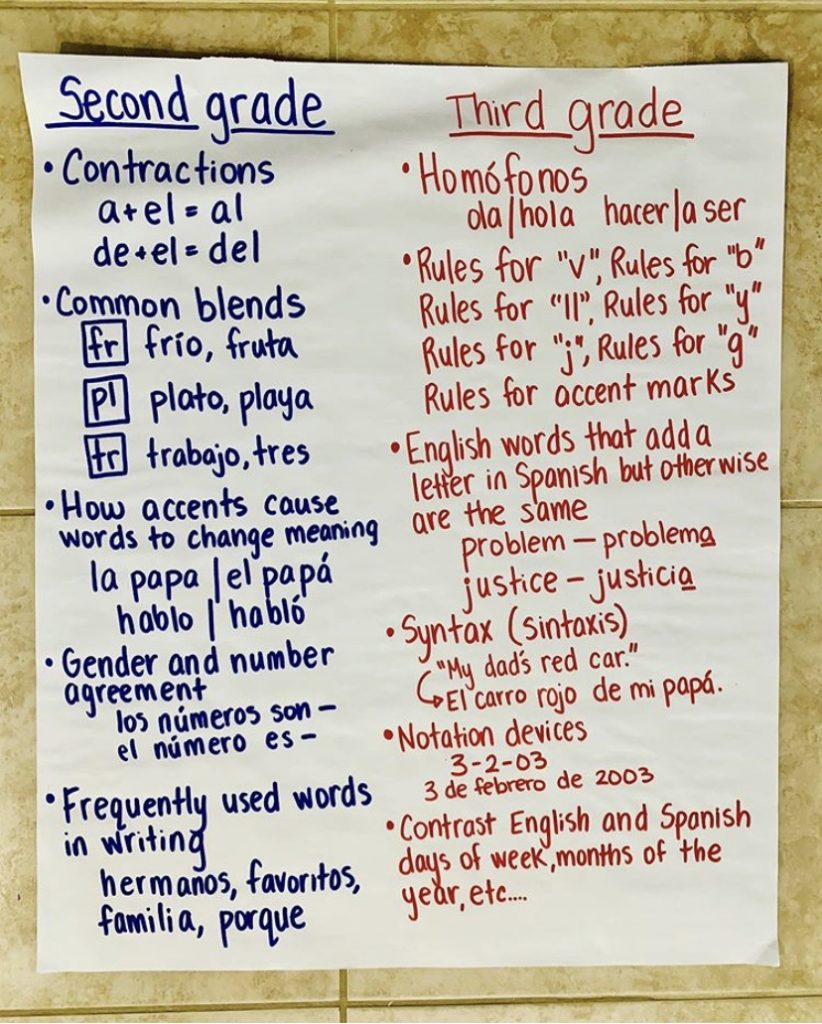 Second grade
• Contractions
a+el = al
de+el = del
• Common blends
fr frío, fruta
pl plato, playa
tr trabajo, tres
• How accents cause
words to change meaning
la papa | el papá
hablo | habló
• Gender and number
agreement
los números son –
el número es –
• Frequently used words
in writing
hermanos, favoritos,
familia, porque
Third grade
• Homófonos
ola/hola hacer/a ser
• Rules for "v", Rules for "b"
Rules for "ll", Rules for "y"
Rules for "j", Rules for "g"
Rules for accent marks
• English words that add a
letter in Spanish but otherwise
are the same
problem – problema
justice – justicia
• Syntax (sintaxis)
"My dad's red car."
↳ El carro rojo de mi papá.
• Notation devices
3-2-03
3 de febrero de 2003
• Contrast English and Spanish
days of week, months of the
year, etc....